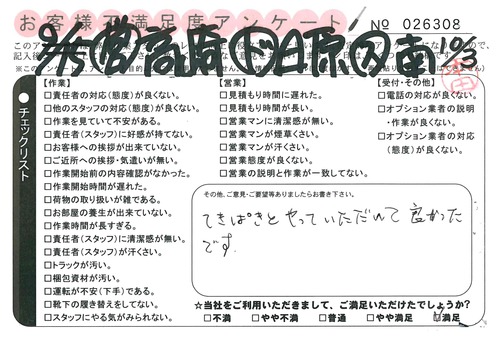 お客様不満足度アンケート
№ 026308
チェックリスト
【作業】
□責任者の対応(態度)が良くない。
□他のスタッフの対応(態度)が良くない。
□作業を見ていて不安がある。
□責任者(スタッフ)に好感が持てない。
□お客様への挨拶が出来ていない。
□ご近所への挨拶・気遣いが無い。
□作業開始前の内容確認がなかった。
□作業開始時間が遅れた。
□荷物の取り扱いが雑である。
□お部屋の養生が出来ていない。
□作業時間が長すぎる。
□責任者(スタッフ)に清潔感が無い。
□責任者(スタッフ)が汗くさい。
□トラックが汚い。
□梱包資材が汚い。
□運転が不安(下手)である。
□靴下の履き替えをしてない。
□スタッフにやる気がみられない。
【営業】
□見積もり時間に遅れた。
□見積もり時間が長い。
□営業マンに清潔感が無い。
□営業マンが煙草くさい。
□営業マンが汗くさい。
□営業態度が良くない。
□営業の説明と作業が一致してない。
【受付・その他】
□電話の対応が良くない。
□オプション業者の説明
・作業が良くない。
□オプション業者の対応
(態度)が良くない。
その他、ご意見・ご要望等ありましたらお書き下さい。
てきぱきとやっていただいて良かった
です。
☆当社をご利用いただきまして、ご満足いただけたでしょうか?
□不満 □やや不満 □普通 □やや満足 □満足